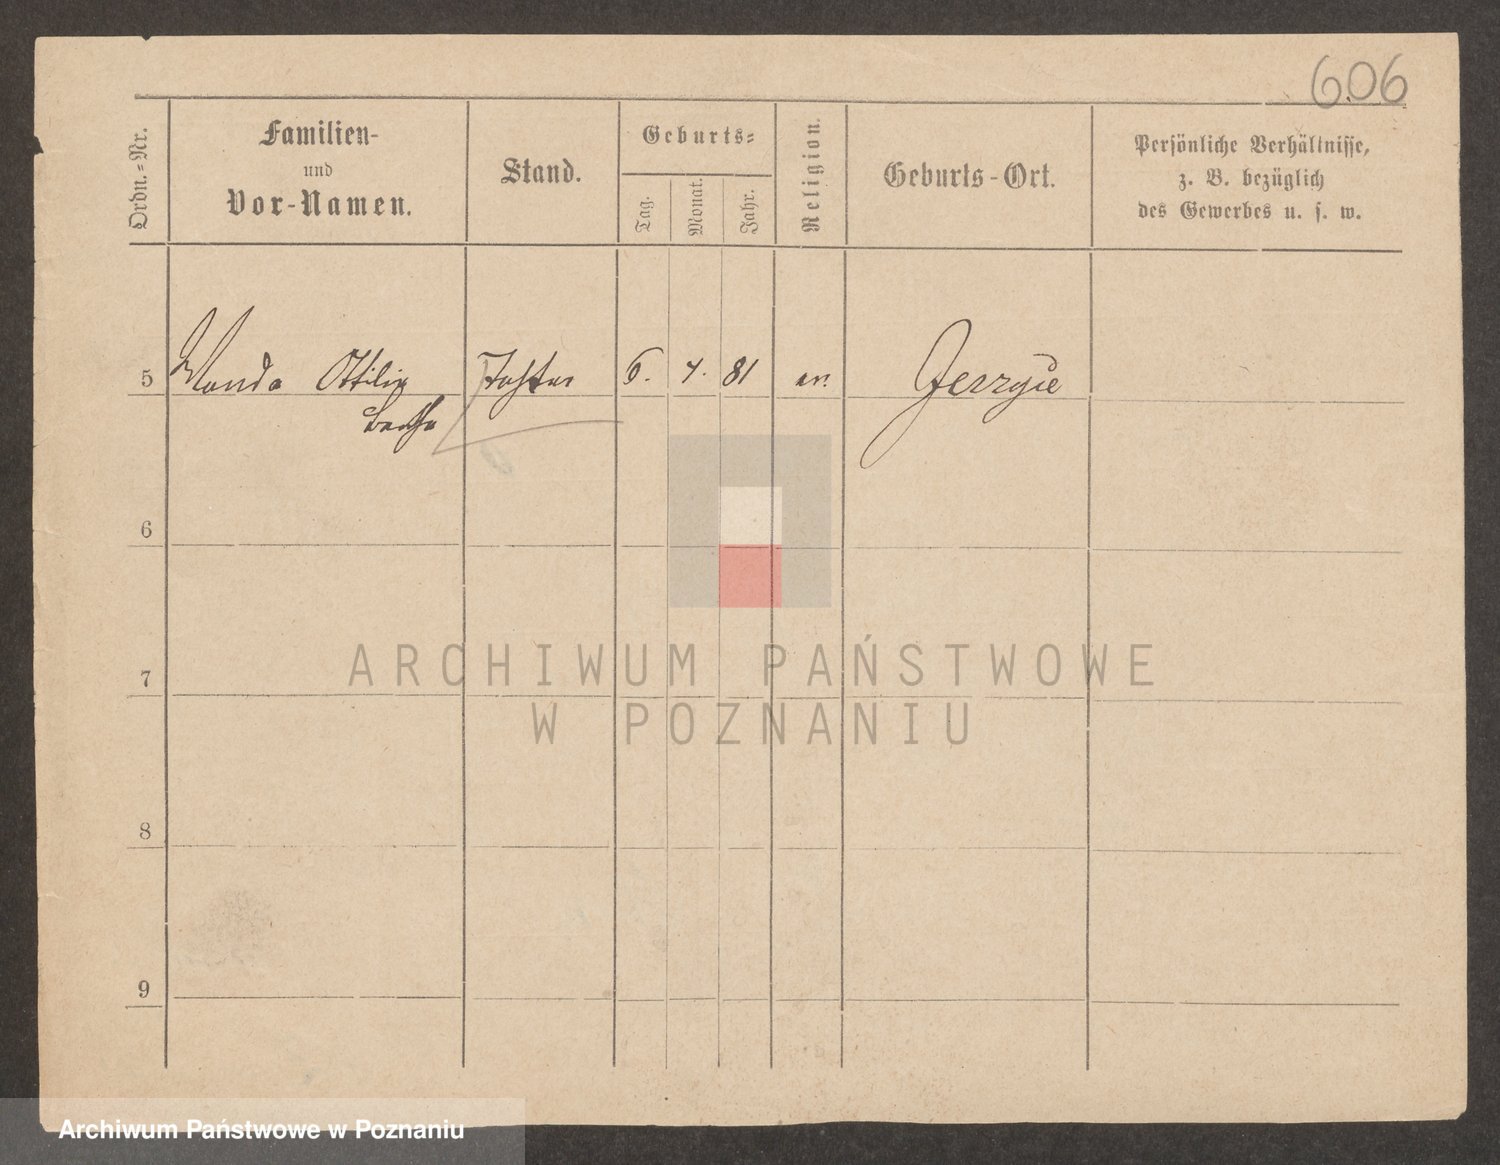 606
Ordn.-Nr.
Familien-
und
Vor-Namen.
Stand.
Geburts-
Tag.
Monat.
Jahr.
Religion.
Geburts-Ort.
Persönliche Verhältnisse,
z. B. bezüglich
des Gewerbes u. s. w.
5 Wanda Ottilie Tochter 6. 4. 81 ev. Jerzyce
Bertha
6
7
8
9
ARCHIWUM PAŃSTWOWE
W POZNANIU
Archiwum Państwowe w Poznaniu